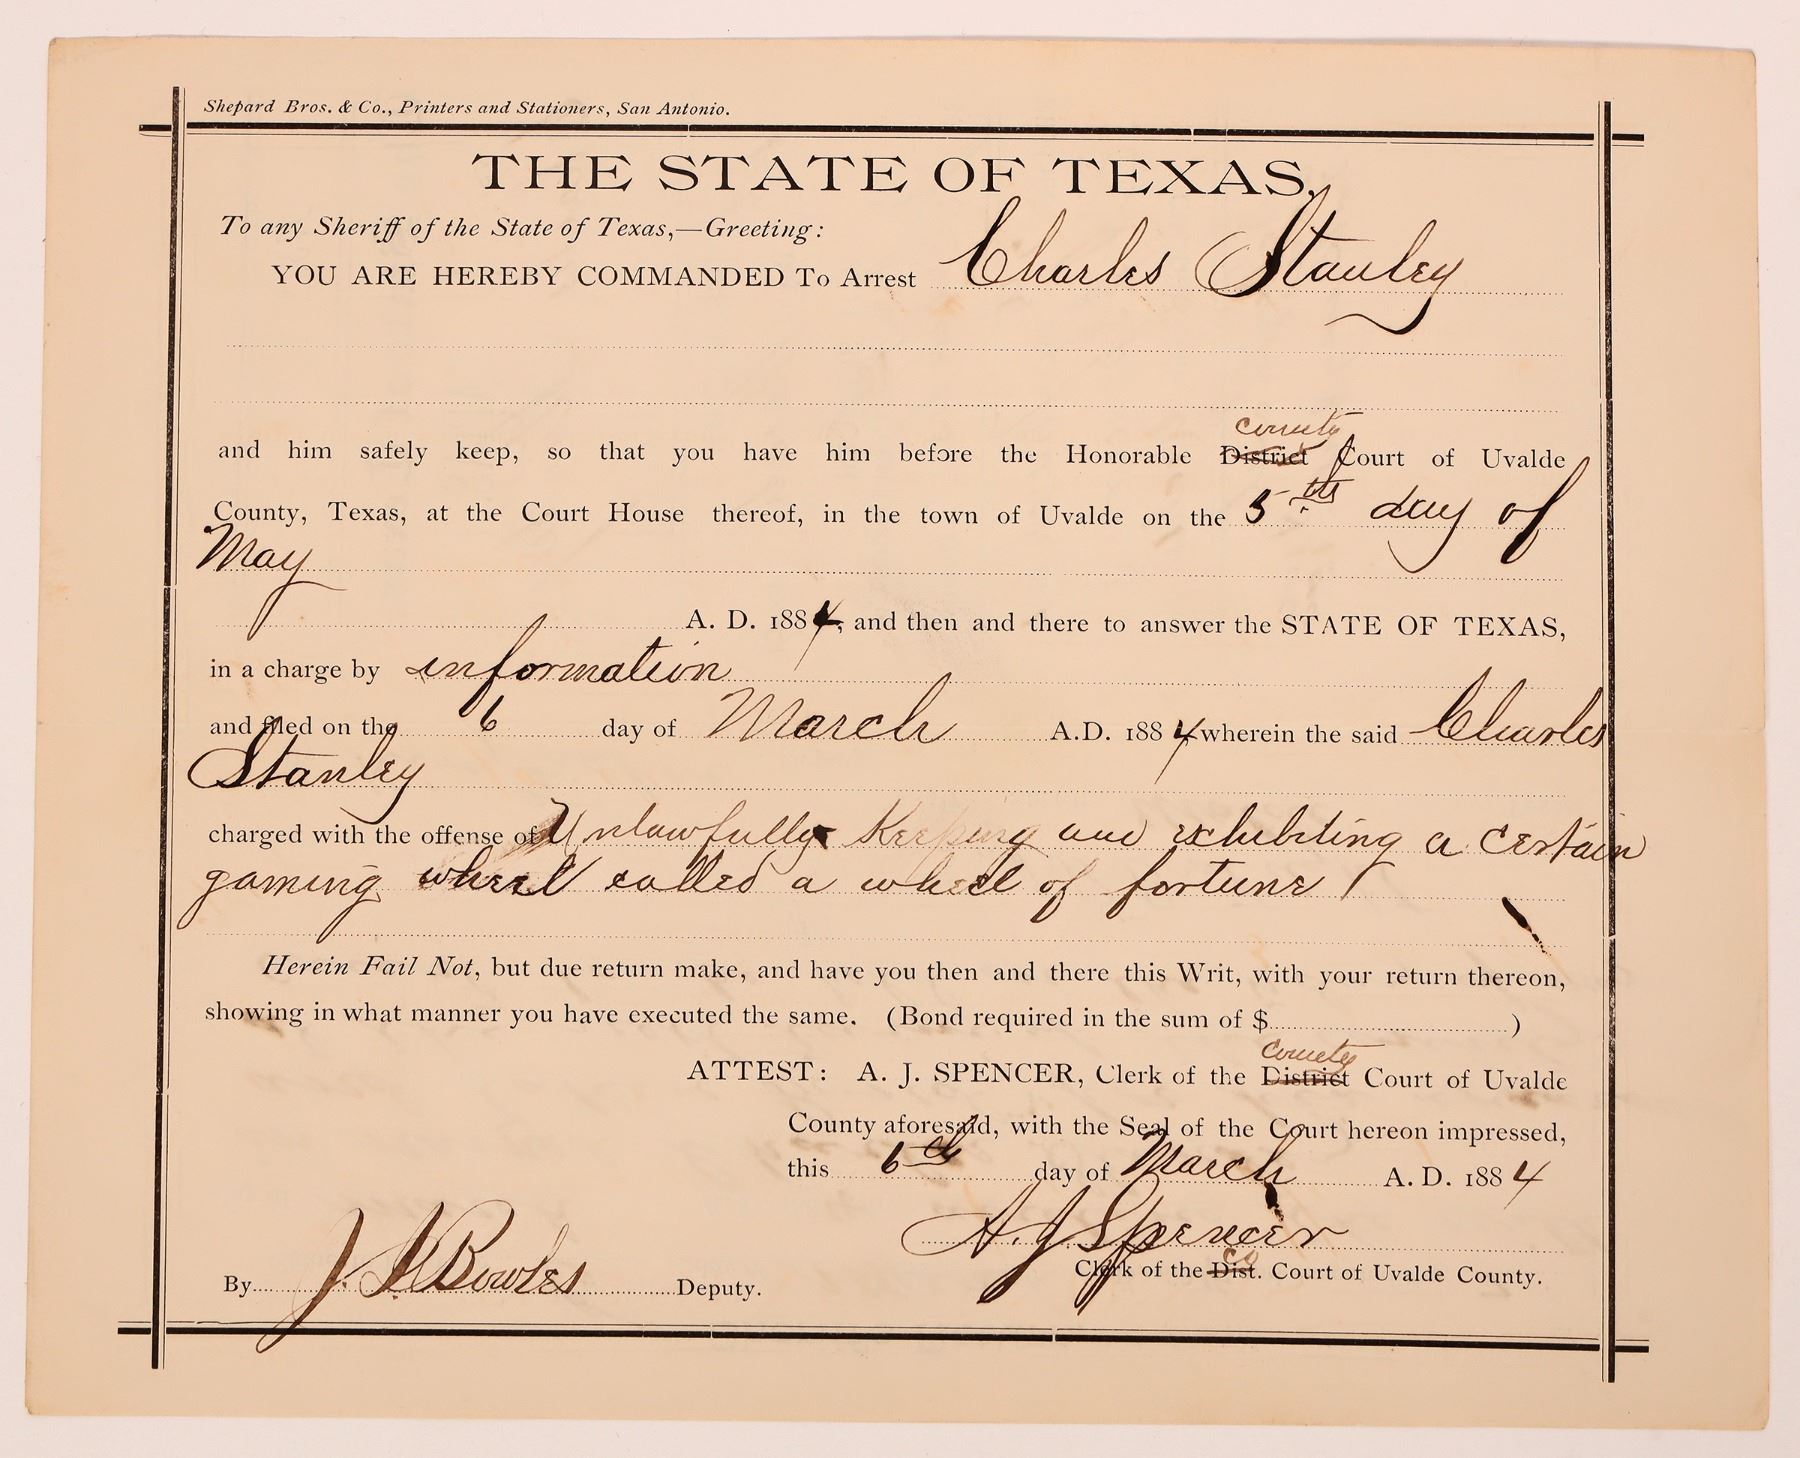 Shepard Bros. & Co., Printers and Stationers, San Antonio.
THE STATE OF TEXAS,
To any Sheriff of the State of Texas,—Greeting:
YOU ARE HEREBY COMMANDED To Arrest Charles Stanley
county
and him safely keep, so that you have him before the Honorable District Court of Uvalde
County, Texas, at the Court House thereof, in the town of Uvalde on the 5th day of
May
A. D. 1884, and then and there to answer the STATE OF TEXAS,
in a charge by information
and filed on the 6 day of March A.D. 1884 wherein the said Charles
Stanley
charged with the offense of Unlawfully Keeping and exhibiting a certain
gaming wheel called a wheel of fortune
Herein Fail Not, but due return make, and have you then and there this Writ, with your return thereon,
showing in what manner you have executed the same. (Bond required in the sum of $ )
county
ATTEST: A. J. SPENCER, Clerk of the District Court of Uvalde
County aforesaid, with the Seal of the Court hereon impressed,
this 6th day of March A. D. 1884
A. J. Spencer
Co
Clerk of the Dist. Court of Uvalde County.
By J. Bowles Deputy.